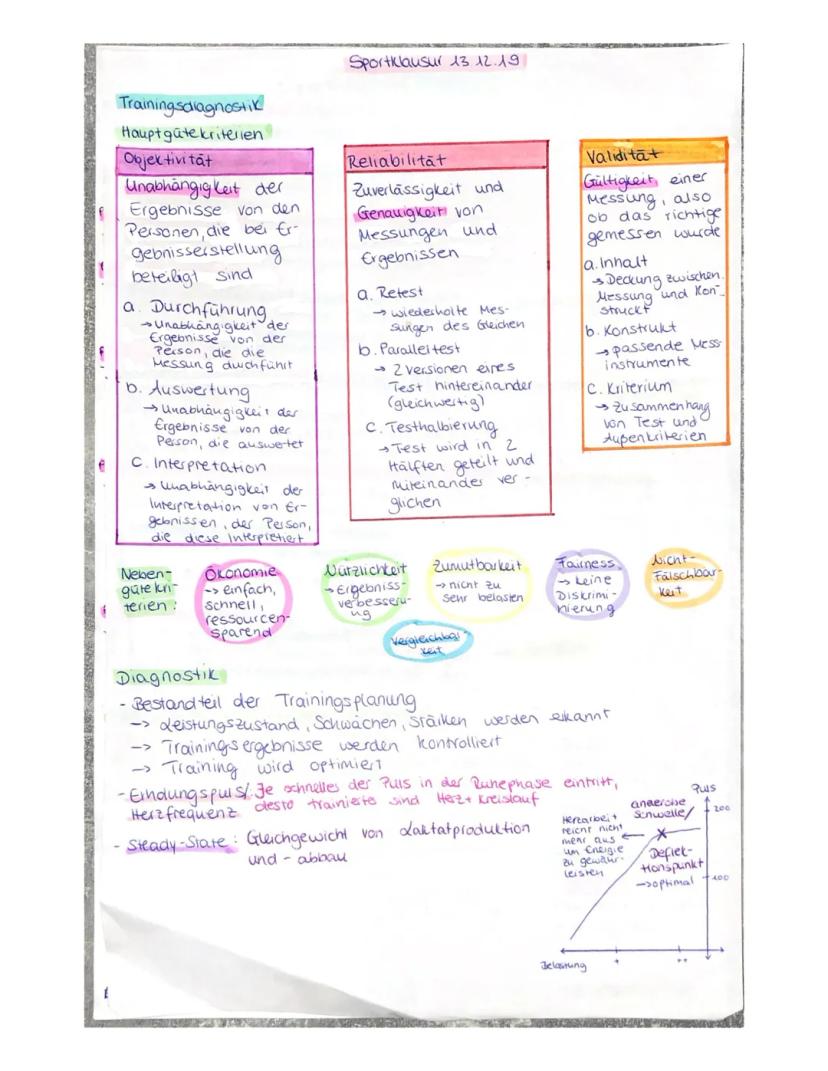 Sportklausur 13.12.19
Trainingsdiagnostik
Hauptgütekriterien
Objektivität
Unabhängigkeit der
Ergebnisse von den
Personen, die bei Er-
gebnisserstellung
beteiligt sind
a. Durchführung
→ Unabhängigkeit der
Ergebnisse von der
Person, die die
Messung durchführt
b. Auswertung
→ Unabhängigkeit der
Ergebnisse von der
Person, die auswertet
c. Interpretation
→ Unabhängigkeit der
Interpretation von Er-
gebnissen, der Person,
die diese interpretiert
Reliabilität
Zuverlässigkeit und
Genauigkeit von
Messungen und
Ergebnissen
a. Retest
→ wiederholte Mes-
sungen des Gleichen
b. Paralleltest
→ 2 Versionen eines
Test hintereinander
(gleichwertig)
c. Testhalbierung
→ Test wird in 2
Hälften geteilt und
miteinander ver-
glichen
Validität
Gültigkeit einer
Messung, also
ob das richtige
gemessen wurde
a. Inhalt
→ Deckung zwischen
Messung und Kon-
struckt
b. Konstrukt
→ passende Mess-
instrumente
c. Kriterium
→ Zusammenhang
von Test und
Außenkriterien
Neben-
gütekri-
terien:
Ökonomie
-> einfach,
schnell,
ressourcen-
sparend
Nützlichkeit
→ Ergebniss-
verbesseru-
ng
Zumutbarkeit
→ nicht zu
sehr belasten
Fairness
→ keine
Diskrimi-
nierung
Nicht-
Fälschbar-
keit
Vergleichbar-
keit
Diagnostik
- Bestandteil der Trainingsplanung
-> Leistungszustand, Schwächen, Stärken werden erkannt
-> Trainingsergebnisse werden kontrolliert
-> Training wird optimiert
- Erholungspuls/ Je schnelles der Puls in der Ruhephase eintritt,
Herzfrequenz desto trainierte sind Herz + Kreislauf
- Steady-State: Gleichgewicht von Laktatproduktion
und - abbau
Puls
200
anaerobe
Schwelle/
Deflek-
tionspunkt
→ optimal
100
Herzarbeit
reicht nicht
mehr aus
um Energie
zu gewähr-
leisten
Belastung
+
++